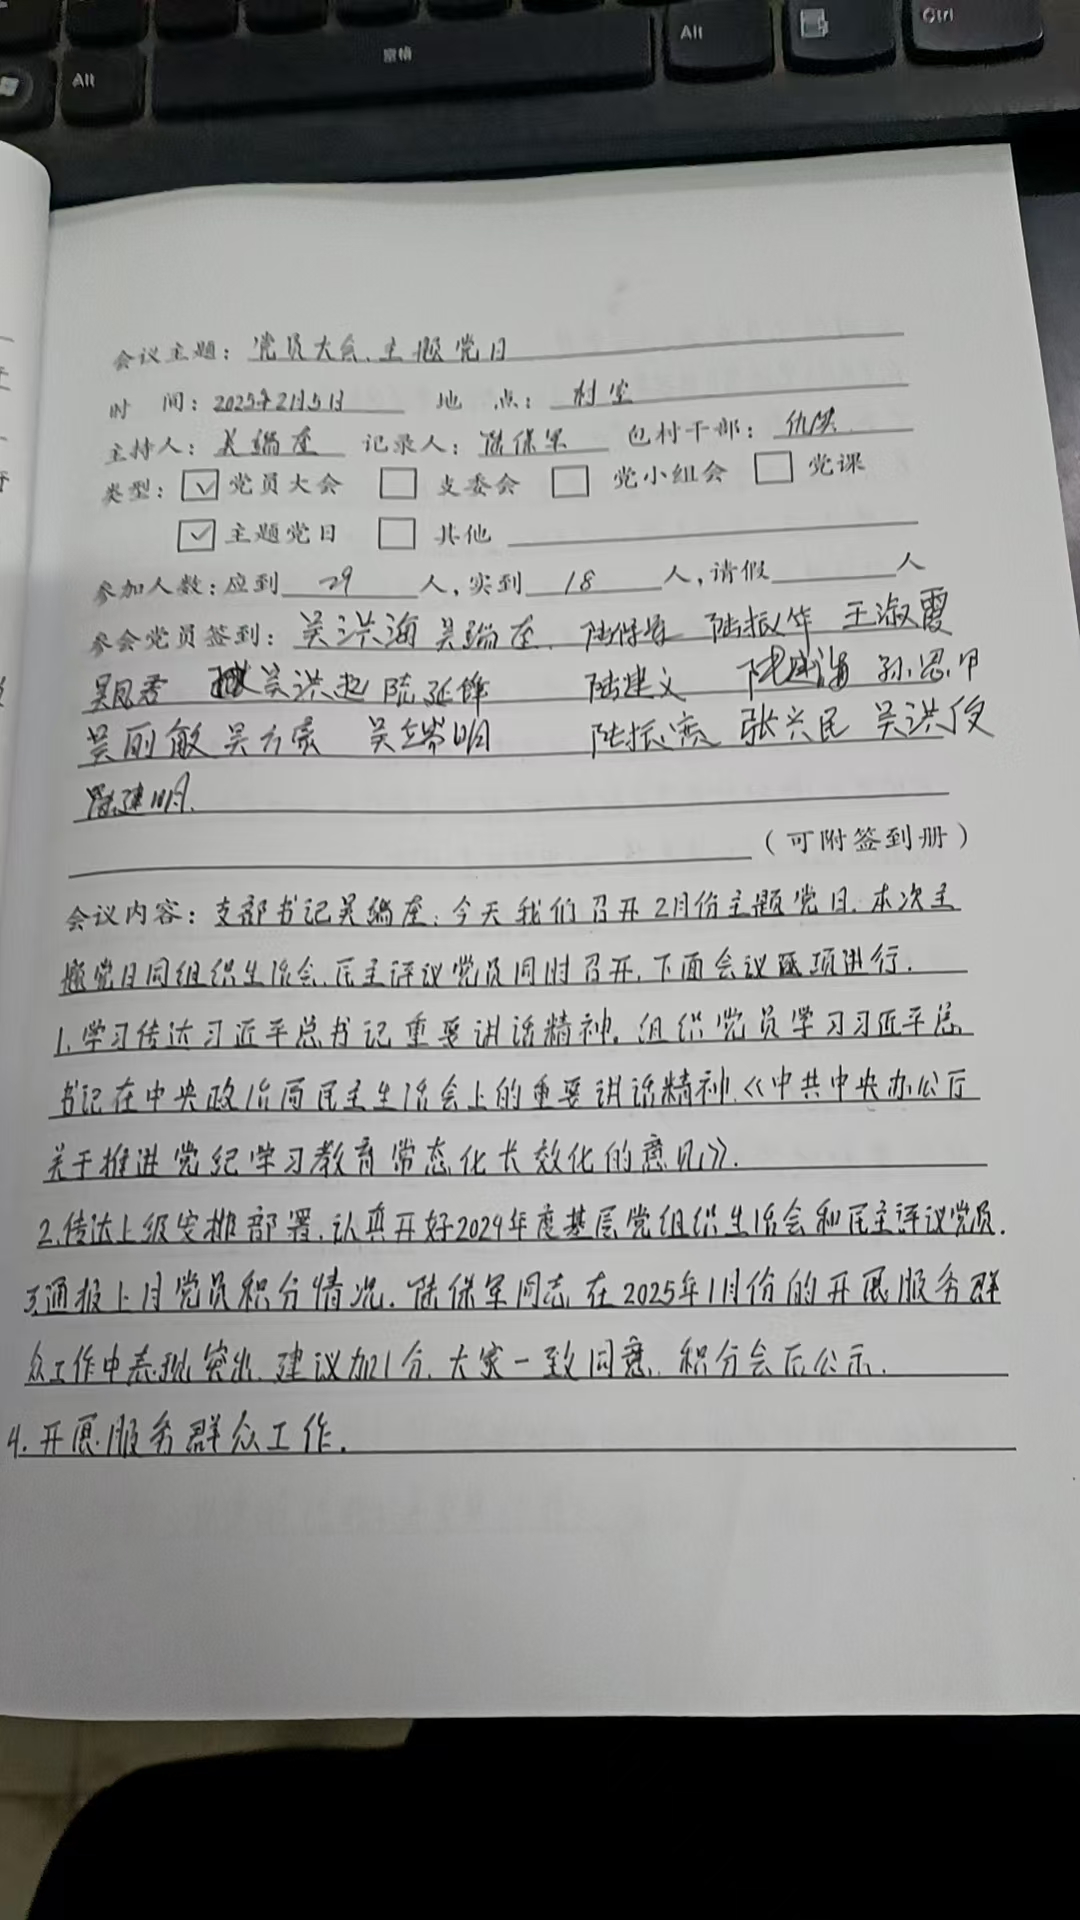 Alt
Alt
Ctrl
会议主题：党员大会、主题党日
时 间：2025年2月5日 地 点：村室
主持人：吴瑞座 记录人：陆保军 包村干部：仇洪
类型：☑党员大会 □支委会 □党小组会 □党课
☑主题党日 □其他
参加人数：应到 29 人，实到 18 人，请假 人
参会党员签到：吴洪海 陆振华 王淑霞
吴凤君 吴洪起 陆延锋 陆建义 孙思甲
吴丽敏 吴方家 吴瑞明 陆振燕 张兴民 吴洪俊
陆建明
（可附签到册）
会议内容：支部书记吴瑞座：今天我们召开2月份主题党日，本次主
题党日同组织生活会、民主评议党员同时召开，下面会议逐项进行.
1.学习传达习近平总书记重要讲话精神。组织党员学习习近平总
书记在中央政治局民主生活会上的重要讲话精神、《中共中央办公厅
关于推进党纪学习教育常态化长效化的意见》.
2.传达上级安排部署，认真开好2024年度基层党组织生活会和民主评议党员.
3通报上月党员积分情况. 陆保军同志在2025年1月份的开展服务群
众工作中表现突出，建议加1分，大家一致同意，积分会后公示.
4.开展服务群众工作.